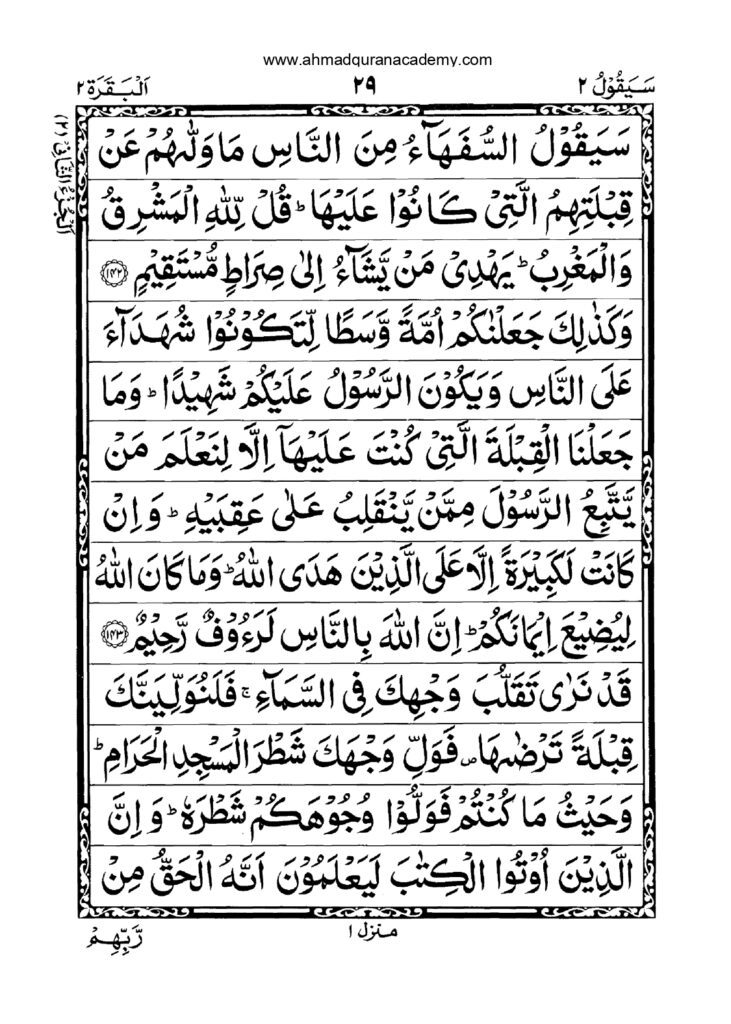 www.ahmadquranacademy.com
سَيَقُوْلُ ٢
٢٩
اَلْبَقَرَة ٢
اَلْجُزْءُ الثَّانِىْ (٢)
سَيَقُوْلُ السُّفَهَآءُ مِنَ النَّاسِ مَا وَلّٰىهُمْ عَنْ
قِبْلَتِهِمُ الَّتِىْ كَانُوْا عَلَيْهَا ؕ قُلْ لِّلّٰهِ الْمَشْرِقُ
وَالْمَغْرِبُ ؕ يَهْدِىْ مَنْ يَّشَآءُ اِلٰى صِرَاطٍ مُّسْتَقِيْمٍ ﴿١٤٢﴾
وَكَذٰلِكَ جَعَلْنٰكُمْ اُمَّةً وَّسَطًا لِّتَكُوْنُوْا شُهَدَآءَ
عَلَى النَّاسِ وَيَكُوْنَ الرَّسُوْلُ عَلَيْكُمْ شَهِيْدًا ؕ وَمَا
جَعَلْنَا الْقِبْلَةَ الَّتِىْ كُنْتَ عَلَيْهَآ اِلَّا لِنَعْلَمَ مَنْ
يَّتَّبِعُ الرَّسُوْلَ مِمَّنْ يَّنْقَلِبُ عَلٰى عَقِبَيْهِ ؕ وَاِنْ
كَانَتْ لَكَبِيْرَةً اِلَّا عَلَى الَّذِيْنَ هَدَى اللّٰهُ ؕ وَمَا كَانَ اللّٰهُ
لِيُضِيْعَ اِيْمَانَكُمْ ؕ اِنَّ اللّٰهَ بِالنَّاسِ لَرَءُوْفٌ رَّحِيْمٌ ﴿١٤٣﴾
قَدْ نَرٰى تَقَلُّبَ وَجْهِكَ فِى السَّمَآءِ ۚ فَلَنُوَلِّيَنَّكَ
قِبْلَةً تَرْضٰىهَا ۪ فَوَلِّ وَجْهَكَ شَطْرَ الْمَسْجِدِ الْحَرَامِ ؕ
وَحَيْثُ مَا كُنْتُمْ فَوَلُّوْا وُجُوْهَكُمْ شَطْرَهٗ ؕ وَاِنَّ
الَّذِيْنَ اُوْتُوا الْكِتٰبَ لَيَعْلَمُوْنَ اَنَّهُ الْحَقُّ مِنْ
منزل ١
رَّبِّهِمْ